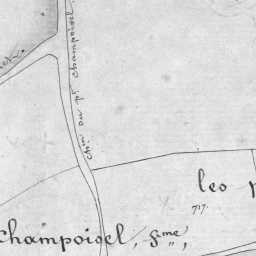 chin du pt Champoisel
leo
717.
Champoisel, fme,